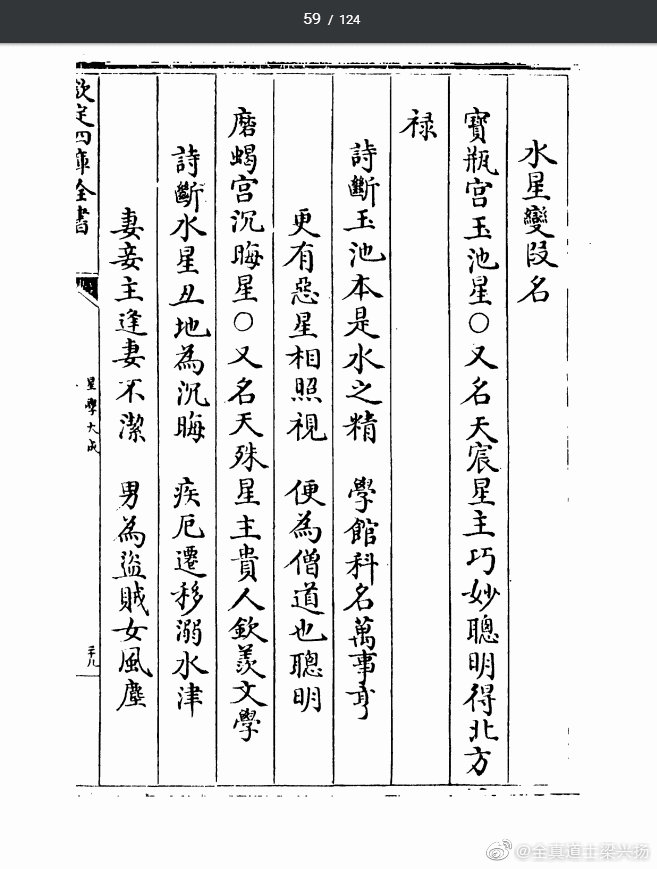 59 / 124
水星變段名
寶瓶宮玉池星○又名天宸星主巧妙聰明得北方
禄
詩斷玉池本是水之精 學館科名萬事亨
更有惡星相照視 便為僧道也聰明
磨蝎宮沉晦星○又名天殊星主貴人欽羨文學
詩斷水星丑地為沉晦 疾厄遷移溺水津
妻妾主逢妻不潔 男為盜賊女風塵
欽定四庫全書
星學大成
@全真道士梁兴扬